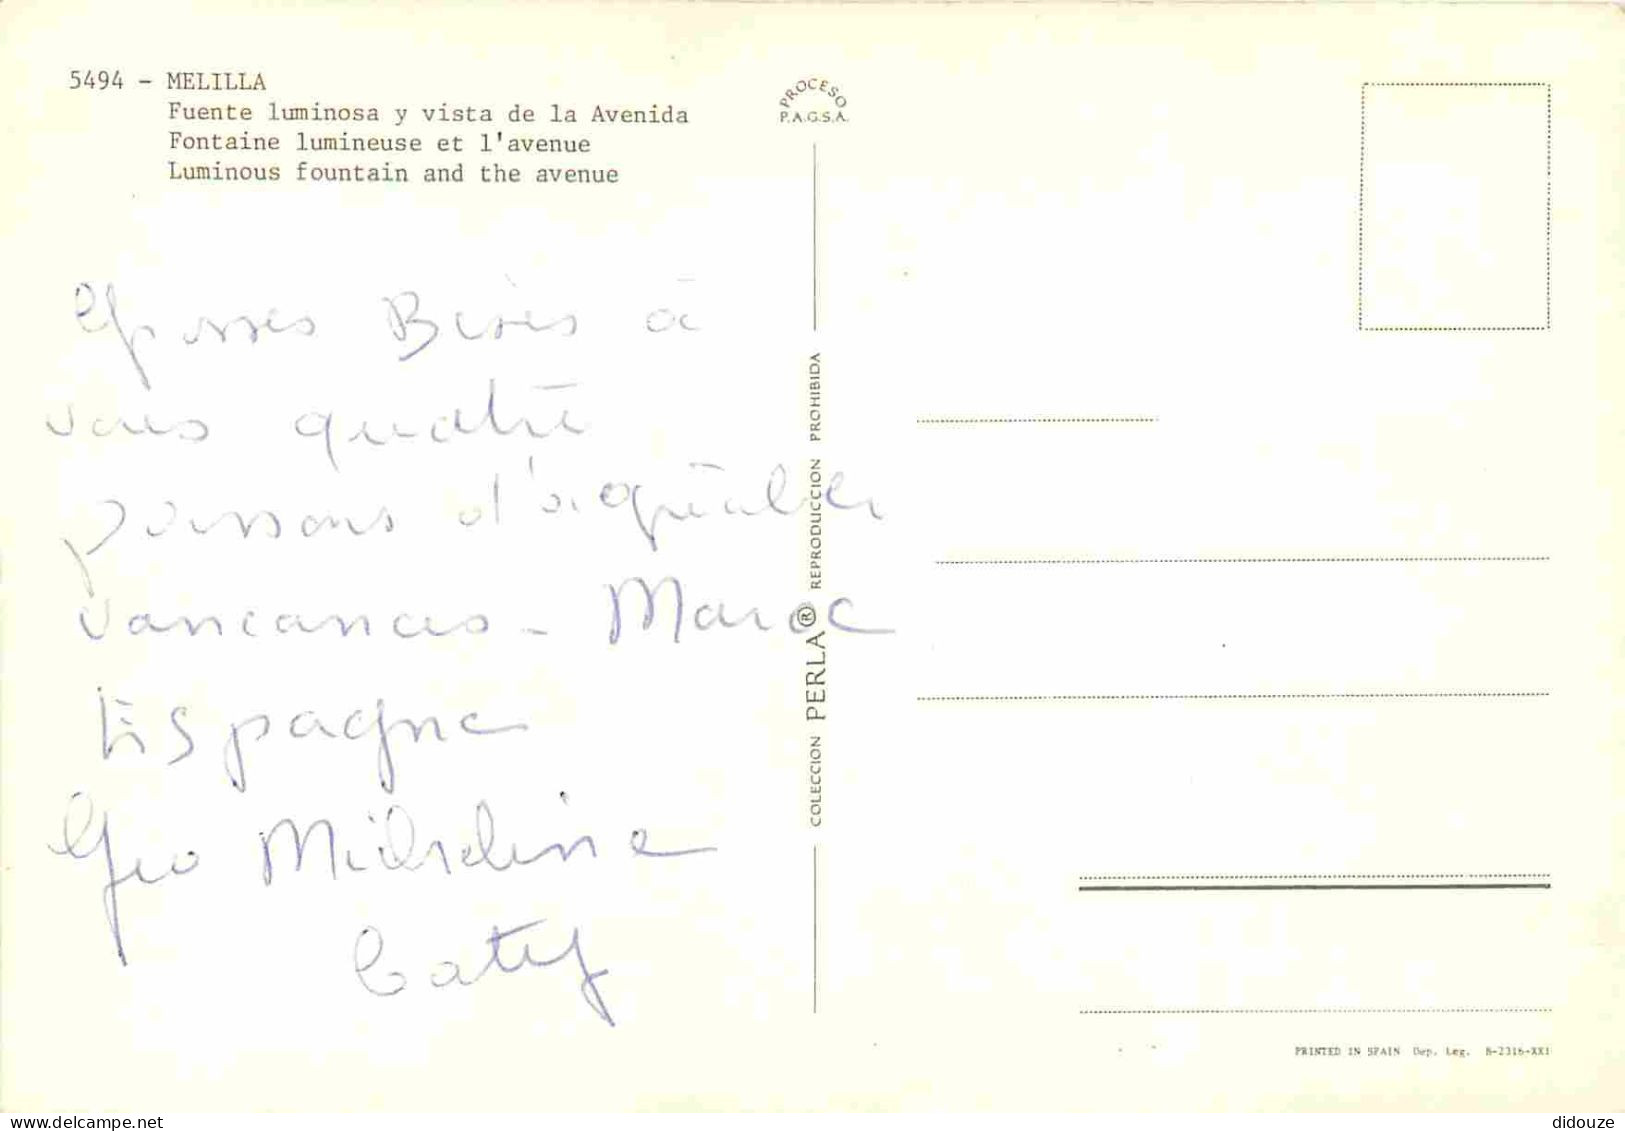 5494 - MELILLA
Fuente luminosa y vista de la Avenida
Fontaine lumineuse et l'avenue
Luminous fountain and the avenue
PROCESO
P.A.G.S.A.
Grosses Bises à
vous quatre
passons d'agréables
vancances - Maroc
Espagne
Geo Micheline
Caty
COLECCION PERLA® REPRODUCCION PROHIBIDA
PRINTED IN SPAIN Dep. Leg. B-2316-XXI
didouze